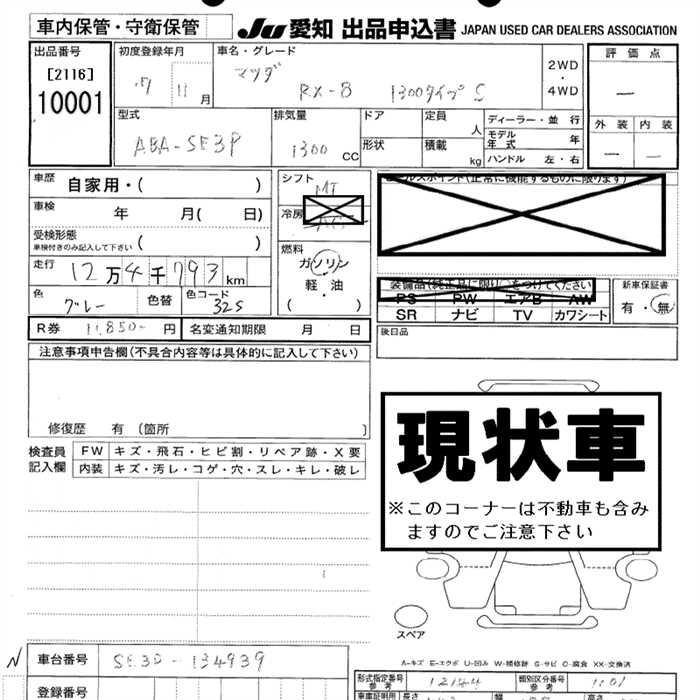 車内保管・守衛保管 JU 愛知 出品申込書 JAPAN USED CAR DEALERS ASSOCIATION
出品番号 初度登録年月 車名・グレード 評価点
[2116] 17 11月 マツダ RX-8 1300タイプS 2WD・4WD —
10001
型式 排気量 ドア 定員 人 ディーラー・並 行 外装 内装
ABA-SE3P 1300 CC 形状 積載 kg モデル年式 年 — —
ハンドル 左・右
車歴 自家用・( ) シフト MT
車検 年 月( 日) 冷房
受検形態 車検付きのみ記入して下さい ( ) 燃料
走行 12万4千793km ガソリン
色 グレー 色替 色コード 32S 軽・油
( )
装備品(純正品に限り○をつけてください) 新車保証書
PS PW エアB AW 有・無
SR ナビ TV カワシート
R券 11,850- 円 名変通知期限 月 日 後日品
注意事項申告欄(不具合内容等は具体的に記入して下さい)
修復歴 有 (箇所 )
現状車
※このコーナーは不動車も含み
ますのでご注意下さい
検査員記入欄 FW キズ・飛石・ヒビ割・リペア跡・X要
内装 キズ・汚レ・コゲ・穴・スレ・キレ・破レ
スペア
A-キズ E-エクボ U-凹み W-補修跡 S-サビ C-腐食 XX-交換済
N 車台番号 SE3P-134939
登録番号
形式指定番号 参考 12144 類別区分番号 参考 1101
車庫証明用 長さ